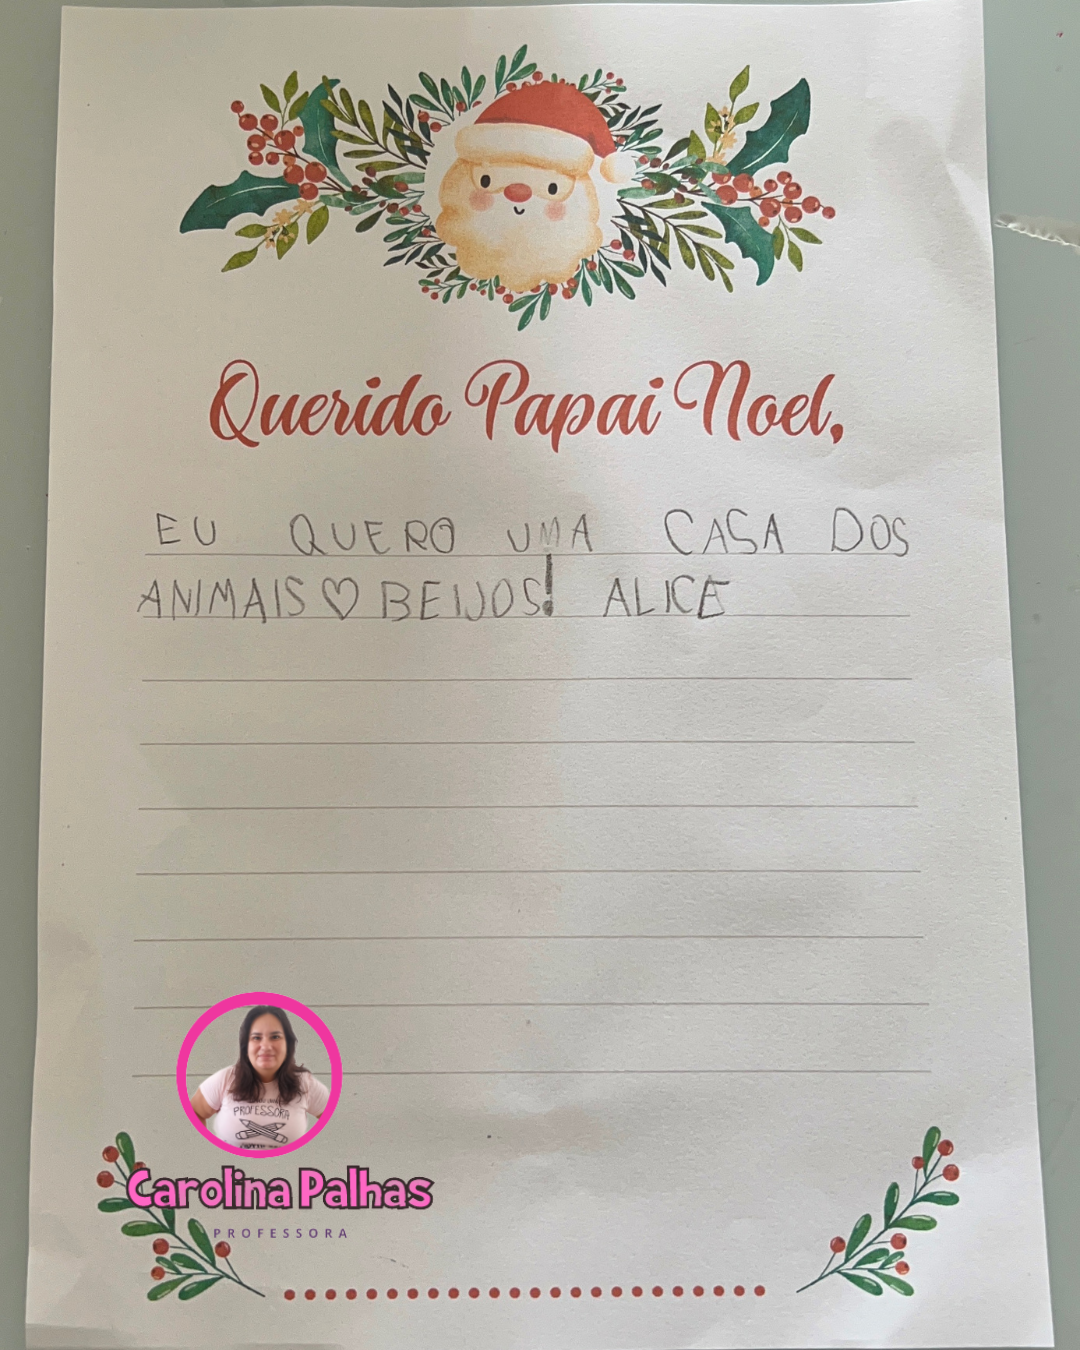 Querido Papai Noel,
EU QUERO UMA CASA DOS
ANIMAIS♡BEIJOS! ALICE
PROFESSORA
Carolina Palhas
PROFESSORA